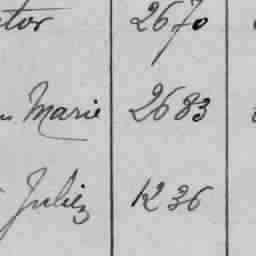 tor 2670
Marie 2683
Juliez 1236